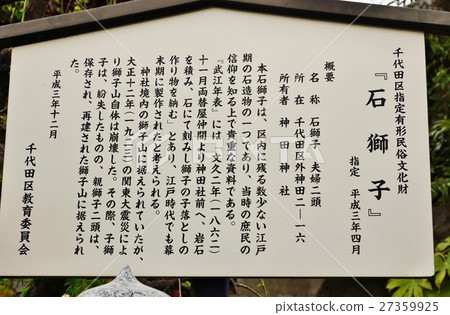 千代田区指定有形民俗文化財
『石獅子』
指定　平成三年四月
概要
名　称　石獅子　夫婦二頭
所　在　千代田区外神田二―一六
所有者　神　田　神　社
本石獅子は、区内に残る数少ない江戸
期の石造物の一つであり、当時の庶民の
信仰を知る上で貴重な資料である。
『武江年表』には、「文久二年（一八六二）
十一月両替屋仲間より神田社前へ、岩石
を積み、石にて刻みし獅子の子落としの
作り物を納む」とあり、江戸時代でも幕
末期に製作されたと考えられる。
神社境内の獅子山に据えられていたが、
大正十二年（一九二三）の関東大震災によ
り獅子山自体は崩壊した。その際、子獅
子は、紛失したものの、親獅子二頭は、
保存され、再建された獅子山に据えられ
た。
平成三年十二月
千代田区教育委員会
27359925